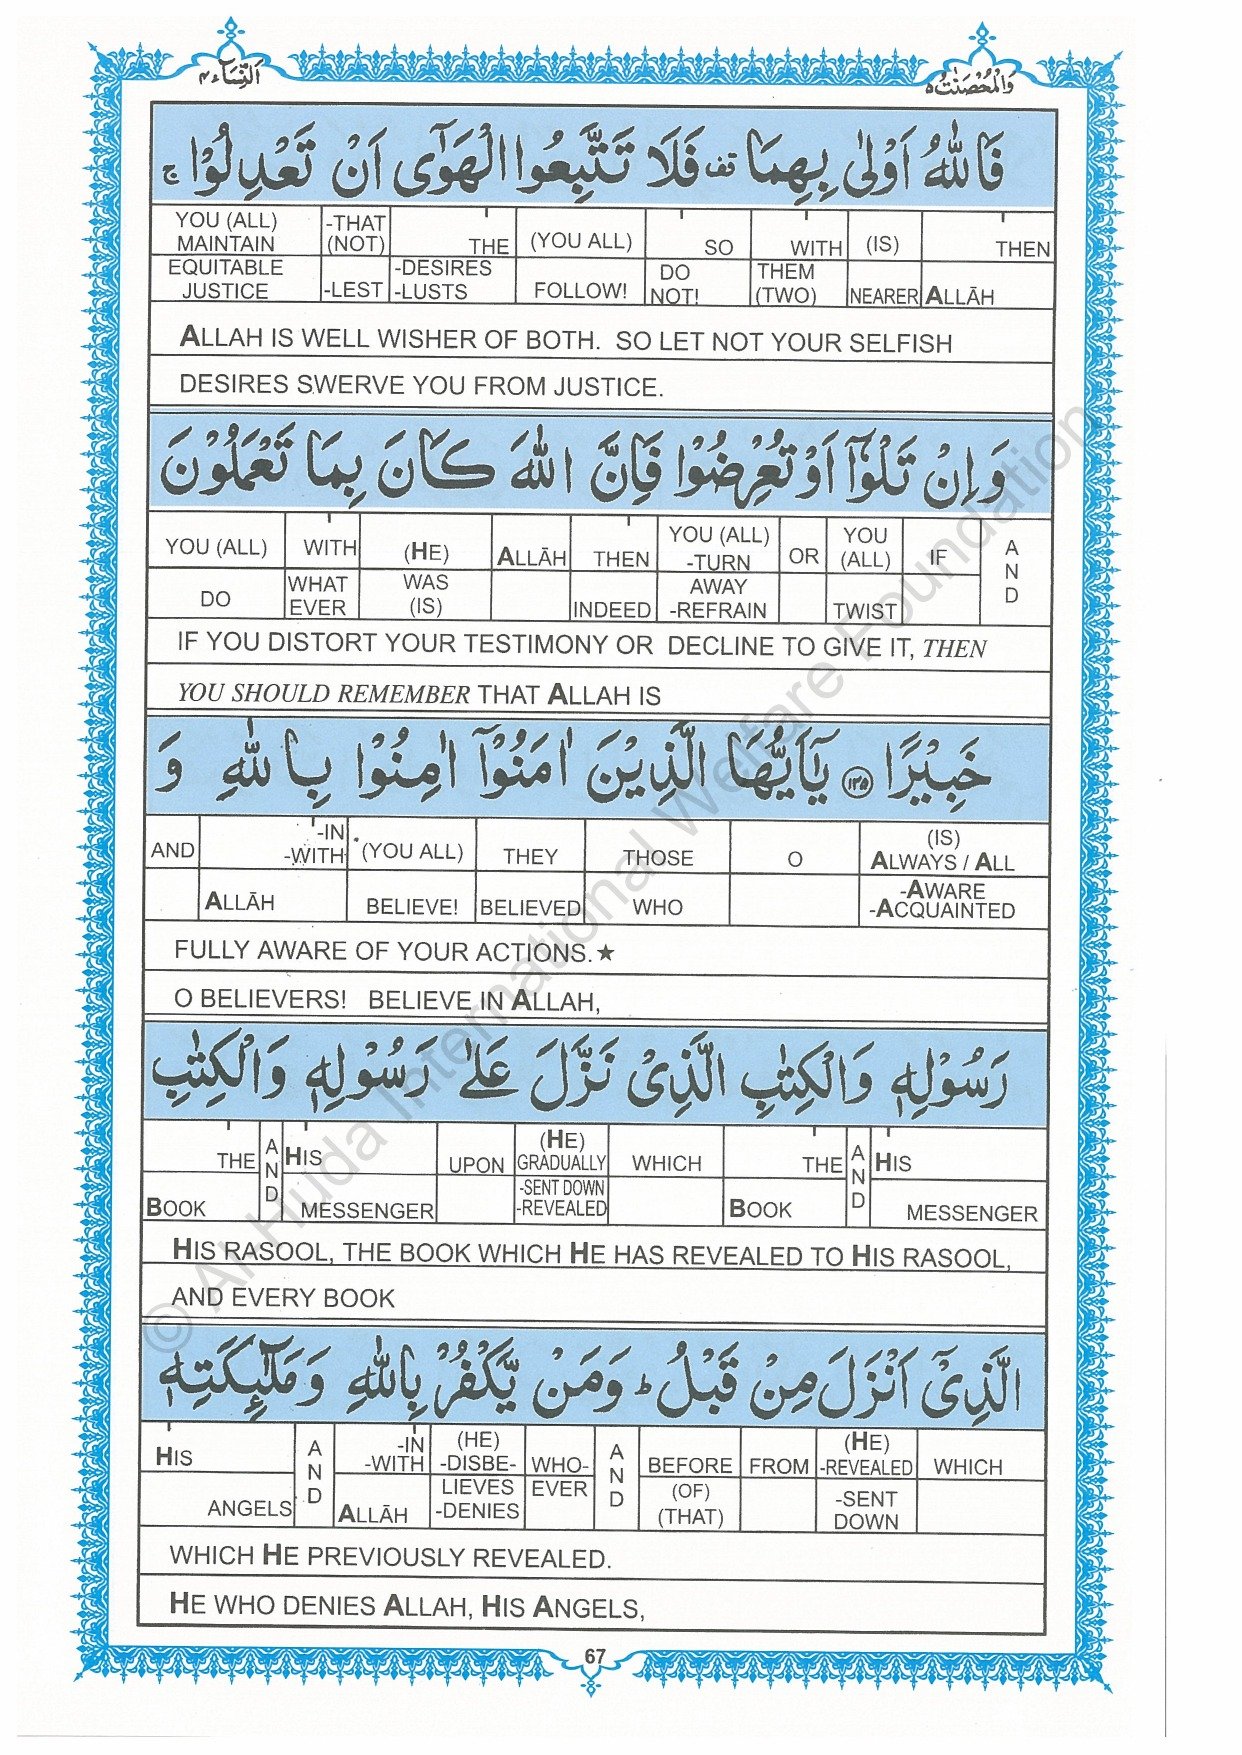 النِّسَآء ٤
وَالْمُحْصَنٰتُ ٥
فَاللّٰهُ اَوْلٰى بِهِمَا قف فَلَا تَتَّبِعُوا الْهَوٰٓى اَنْ تَعْدِلُوْا ج
YOU (ALL) MAINTAIN -THAT (NOT) THE (YOU ALL) SO WITH (IS) THEN
EQUITABLE JUSTICE -LEST -DESIRES -LUSTS FOLLOW! DO NOT! THEM (TWO) NEARER ALLĀH
ALLAH IS WELL WISHER OF BOTH. SO LET NOT YOUR SELFISH
DESIRES SWERVE YOU FROM JUSTICE.
وَاِنْ تَلْوٗٓا اَوْ تُعْرِضُوْا فَاِنَّ اللّٰهَ كَانَ بِمَا تَعْمَلُوْنَ
YOU (ALL) WITH (HE) ALLĀH THEN YOU (ALL) -TURN OR YOU (ALL) IF AND
DO WHAT EVER WAS (IS) INDEED AWAY -REFRAIN TWIST
IF YOU DISTORT YOUR TESTIMONY OR DECLINE TO GIVE IT, THEN
YOU SHOULD REMEMBER THAT ALLAH IS
خَبِيْرًا ١٣٥ يٰٓاَيُّهَا الَّذِيْنَ اٰمَنُوْٓا اٰمِنُوْا بِاللّٰهِ وَ
AND -IN -WITH (YOU ALL) THEY THOSE O (IS) ALWAYS / ALL
ALLĀH BELIEVE! BELIEVED WHO -AWARE -ACQUAINTED
FULLY AWARE OF YOUR ACTIONS.★
O BELIEVERS! BELIEVE IN ALLAH,
رَسُوْلِهٖ وَالْكِتٰبِ الَّذِىْ نَزَّلَ عَلٰى رَسُوْلِهٖ وَالْكِتٰبِ
THE AND HIS UPON (HE) GRADUALLY WHICH THE AND HIS
BOOK MESSENGER -SENT DOWN -REVEALED BOOK MESSENGER
HIS RASOOL, THE BOOK WHICH HE HAS REVEALED TO HIS RASOOL,
AND EVERY BOOK
الَّذِىْٓ اَنْزَلَ مِنْ قَبْلُ ط وَمَنْ يَّكْفُرْ بِاللّٰهِ وَمَلٰٓئِكَتِهٖ
HIS AND -IN -WITH (HE) -DISBE- WHO- AND BEFORE FROM (HE) -REVEALED WHICH
ANGELS ALLĀH LIEVES -DENIES EVER (OF) (THAT) -SENT DOWN
WHICH HE PREVIOUSLY REVEALED.
HE WHO DENIES ALLAH, HIS ANGELS,
67
© Al-Huda International Welfare Foundation